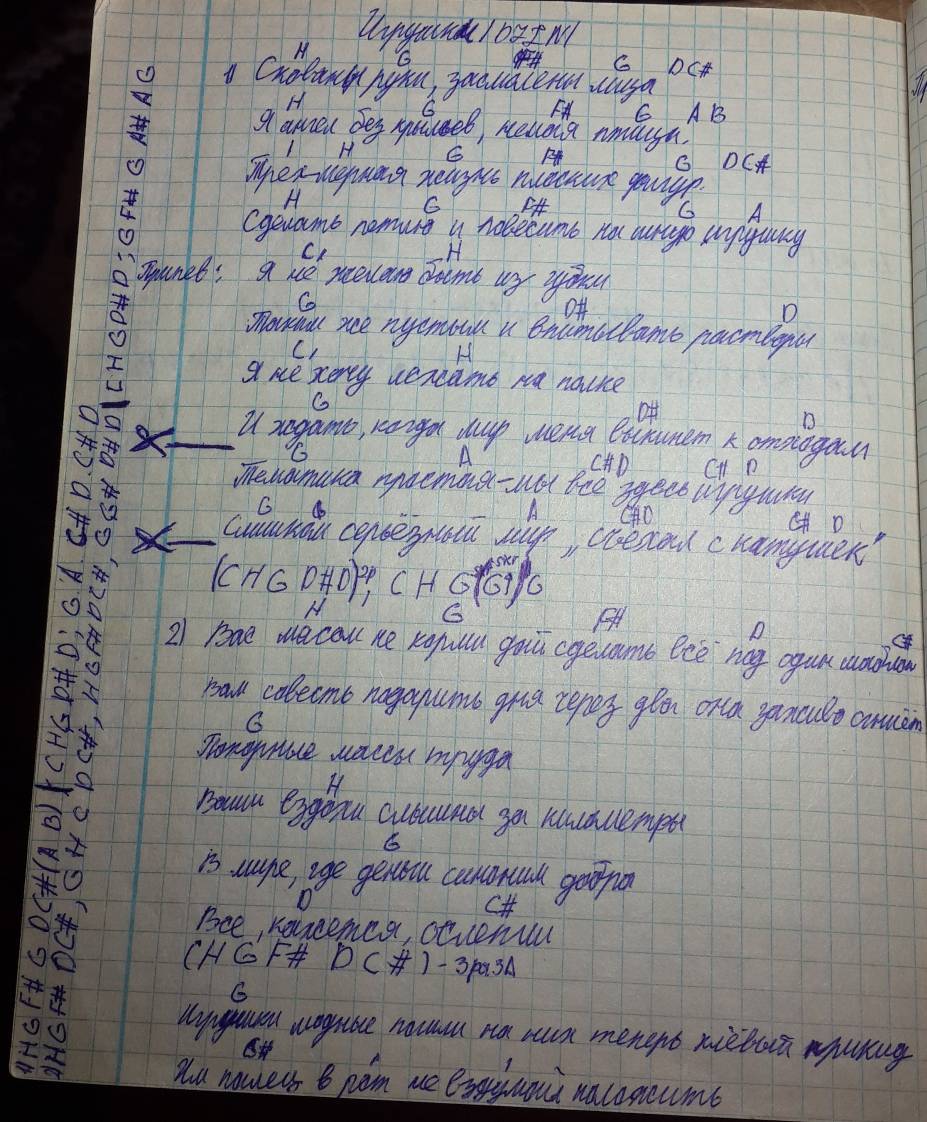 Игрушки/DZIM/
H G F# G D C#
1) Скованы руки, засмалены лица
H G F# G A B
Я ангел без крыльев, немая птица.
H G F# G D C#
Трёхмерная жизнь плоских фигур.
H G F# G A
Сделать петлю и повесить на шнур игрушку
C H
Припев: Я не желаю быть из губки
G D# D
Таким же пустым и впитывать растворы
C H
Я не хочу лежать на полке
G D# D
И ждать, когда мир меня выкинет к отходам
G A C# D C# D
Тематика простая-мы все здесь игрушки
G G A C# D C# D
Слишком серьёзный мир „съехал с катушек"
(C H G D# D)2р, C H G (G↑) G
H G F# D C#
2) Вас мясом не корми дай сделать всё под один шаблон
Вам совесть подарить дня через два она заживо сгниёт
G
Покорные массы труда
H
Ваши вздохи слышны за километры
G
В мире, где деньги синоним добра
D C#
Все, кажется, ослепли
(H G F# D C#) - 3 раза
G
Игрушки модные пошли на них теперь клёвый прикид
C#
Им палец в рот не вздумай положить
1) H G F# G D C# (A B) | C H G D# D; G A C# D C# D
2) H G F# D C#, G H G D C#, H G F# D C#, G G# D# D | C H G D# D; G F# G A# A G